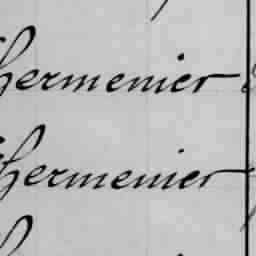 Thermenier
Thermenier